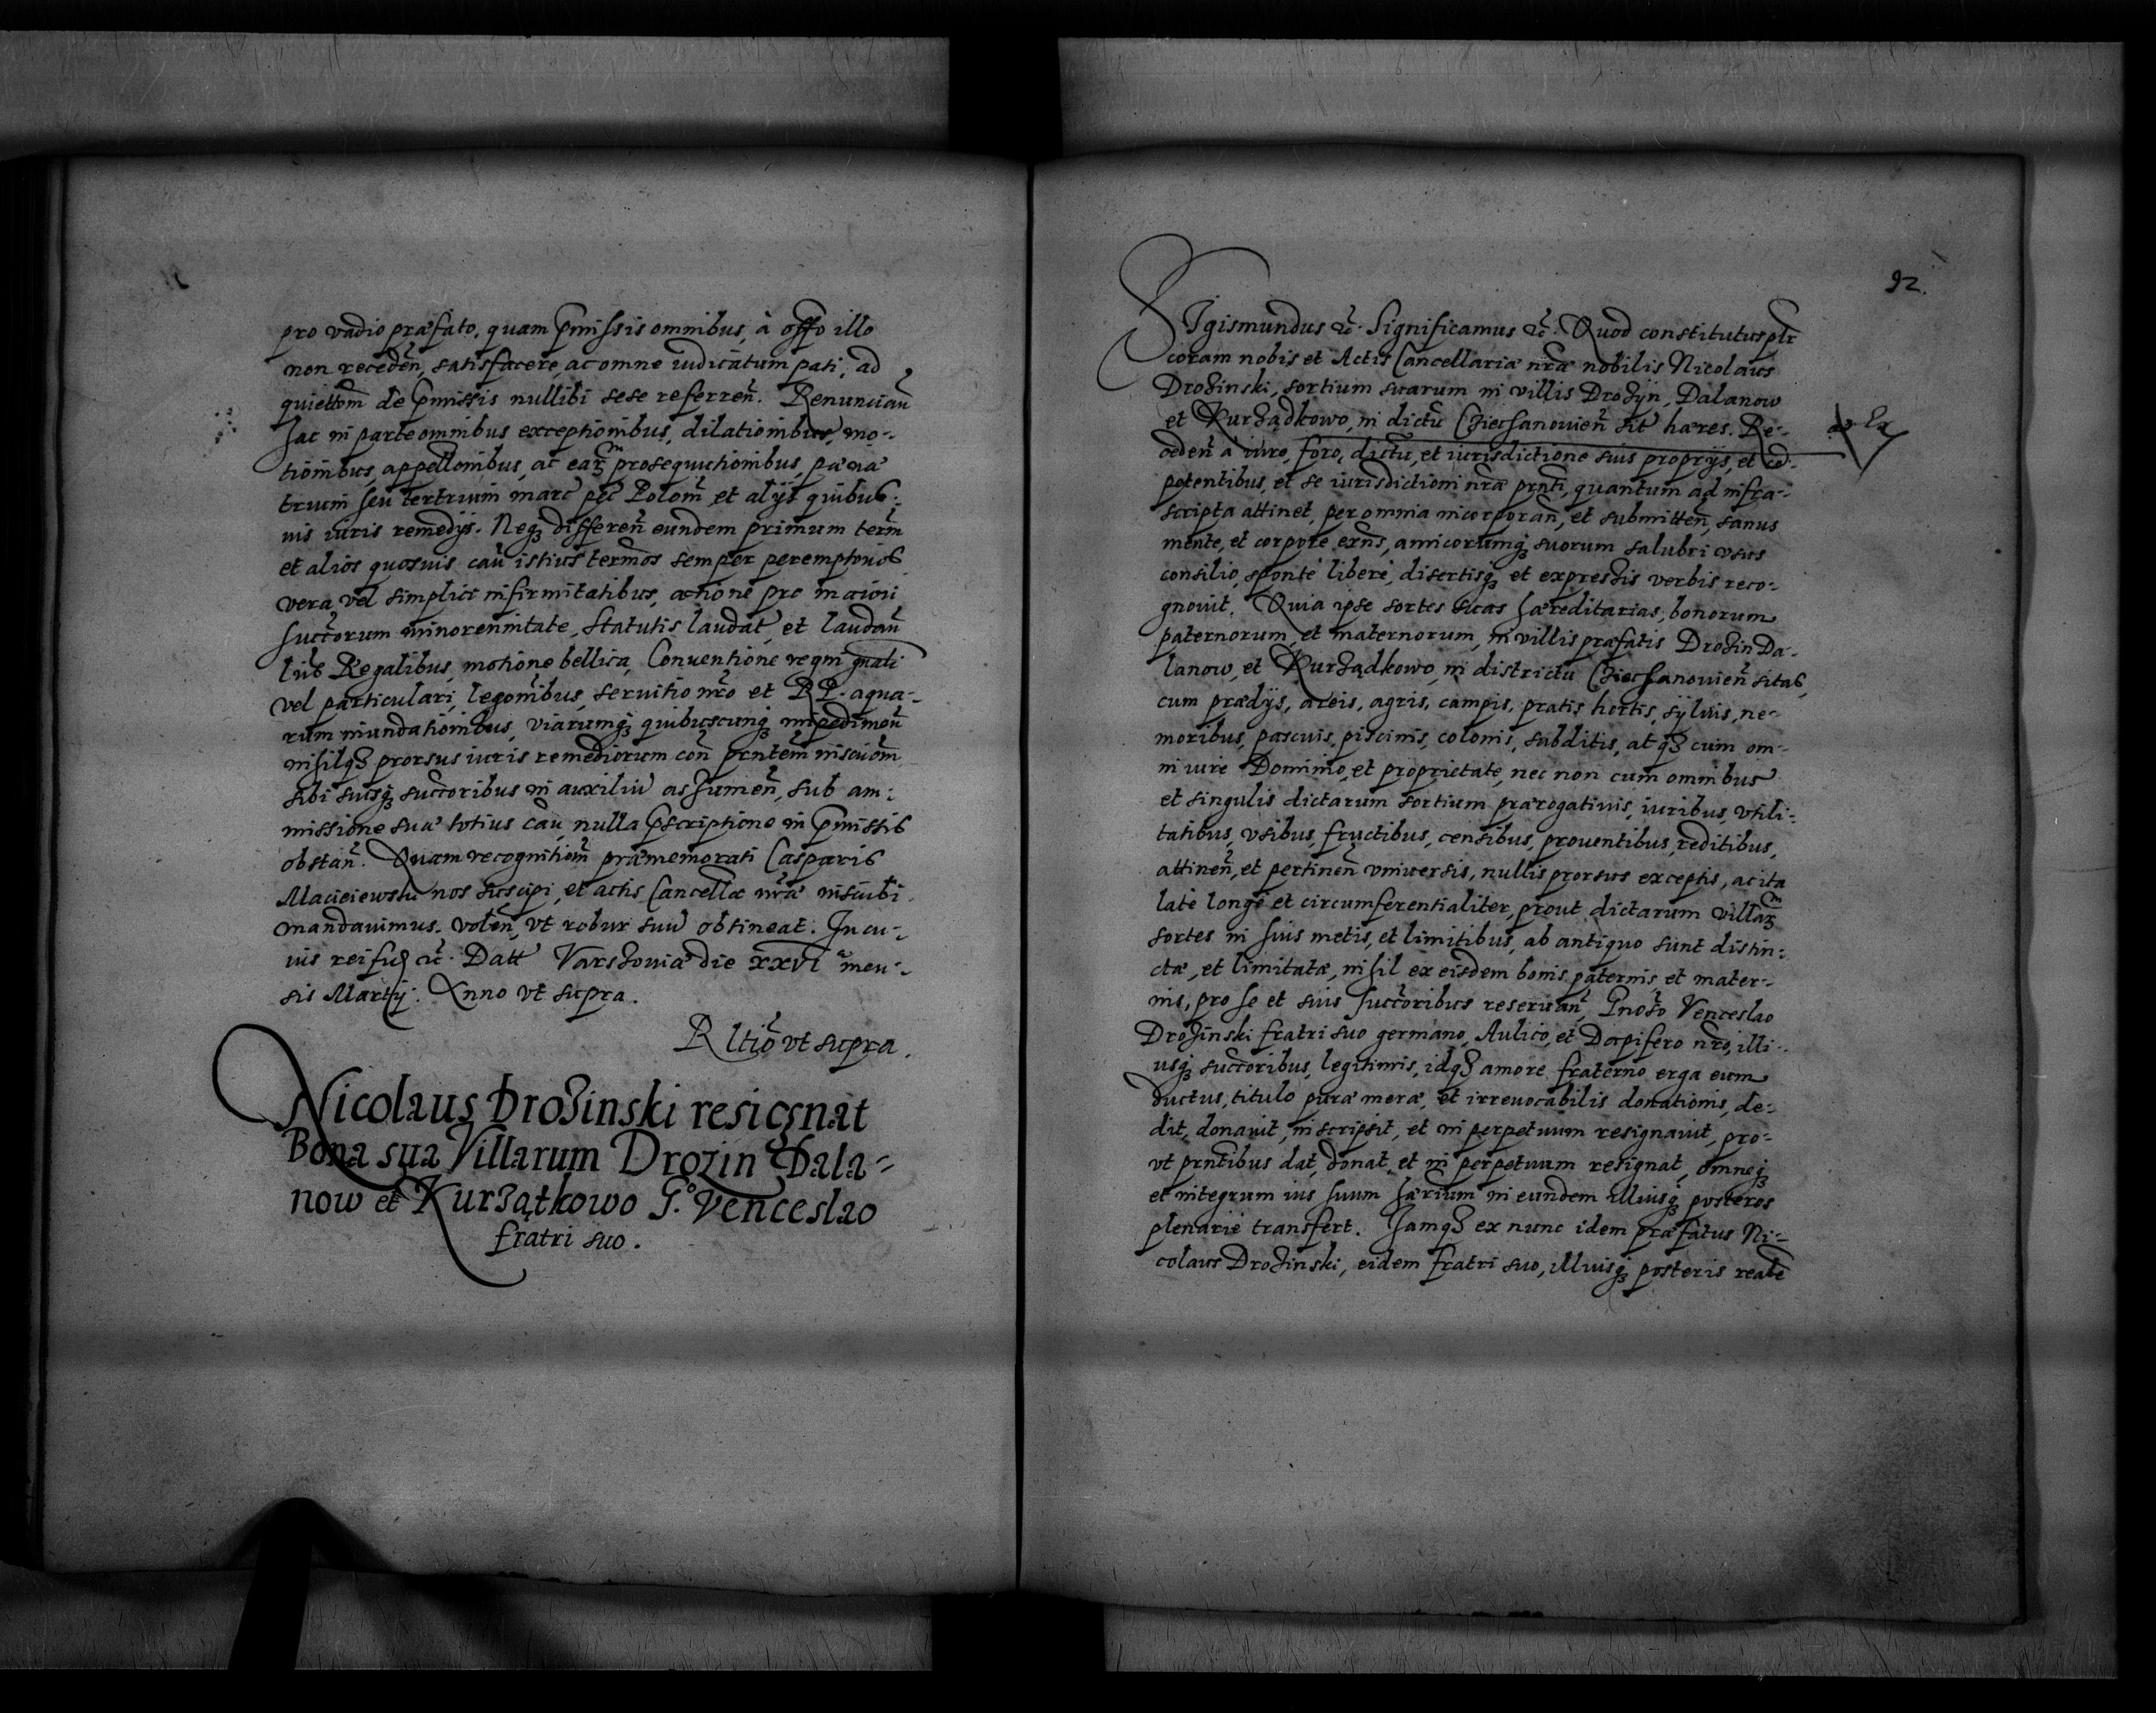 pro vadio præfato, quam p̄missis omnibus, à offo illo
non receden̄, satisfacere, ac omne iudicatum pati, ad
quiettom̄ de p̄missis nullibi sese referren̄. Renuncian̄
hac in parte omnibus exceptionibus, dilationibus, mo-
tionibus, appellonibus, ac earꝫ prosequutionibus, pæna
trium seu tertrium marc̄ pec̄ Polom̄ et alijs quibus-
uis iuris remedijs. Neqꝫ differen̄ eundem primum term̄
et alios quosuis cau̅ istius term̄os semper peremptorios
vera vel simplici infirmitatibus, actione pro maiori
succ̄orum minorennitate, statutis laudat̄, et laudan̄
lius Regalibus, motione bellica, Conuentione regni gnali
vel particulari, legom̄ibus, seruitio nr̄o et RP. aqua-
rum inundationibus, viarumqꝫ quibuscunqꝫ impedimen̄
nihilqꝫ prorsus iuris remediorum con̄ prntem̄ inscriom̄
sibi suisqꝫ succ̄oribus in auxiliū assumen̄, sub am-
missione suæ totius cau̅, nulla p̄scriptione in p̄missis
obstan̄. Quam recognitiom̄ præmemorati Casparis
Macieiewski nos suscipi, et actis Cancellæ nr̄æ inscribi
mandauimus. volen̄, vt robur suū obtineat. In cu-
ius rei fidꝫ &c̄. Datt Varshouiæ die xxvi men-
sis Martij. Anno vt supra.
Rltio̅ vt supra.
Nicolaus Drozinski resignat
Bona sua Villarum Drozin Dala-
now et Kurządkowo G.° Venceslao
fratri suo.
92.
SIgismundus &c̄. Significamus &c̄. Quod constitutus pl̄r
coram nobis et Actis Cancellariæ nr̄æ nobilis Nicolaus
Drozinski, sortium suarum in villis Drozijn, Dalanow
et Kurządkowo, in dictu Cziechanouien̄ sit̄ hæres. Re-
ceden̄ à iure, foro, dictu, et iurisdictione suis proprijs, et cō-
potentibus, et se iurisdictioni nr̄æ prnti, quantum ad infra-
scripta attinet, per omnia incorporan̄, et submitten̄, sanus
mente, et corpore exn̄s, amicorumqꝫ suorum salubri vsus
consilio, sponte liberè, disertisqꝫ et expressis verbis reco-
gnouit. Quia ipse sortes suas hæreditarias, bonorum
paternorum et maternorum, in villis præfatis Drozin Da-
lanow, et Kurządkowo, in districtu Cziechanouien̄ sitas,
cum prædijs, areis, agris, campis, pratis hortis, syluis, ne-
moribus, pascuis, piscinis, colonis, subditis, atqꝫ cum om-
ni iure Dominio, et proprietate, nec non cum omnibus
et singulis dictarum sortium prærogatiuis, iuribus, vtili-
tatibus, vsibus, fructibus, censibus, prouentibus, reditibus,
attinen̄, et pertinen̄ vniuersis, nullis prorsus exceptis, ac ita
latè longè et circumferentialiter, prout dictarum villarꝫ
sortes in suis metis, et limitibus, ab antiquo sunt distin-
ctæ, et limitatæ, nihil ex eisdem bonis paternis, et mater-
nis, pro se et suis succ̄oribus reseruan̄, Gnoso̅ Venceslao
Drozinski fratri suo germano, Aulico, et Dapifero nr̄o, illi-
usqꝫ succ̄oribus, legitimis, idqꝫ amore fraterno erga eum
ductus, titulo puræ meræ, et irreuocabilis donationis, de-
dit, donauit, inscripsit, et in perpetuum resignauit, pro-
vt prntibus dat, donat, et in perpetuum resignat, omneqꝫ
et integrum ius suum hærium in eundem illiusqꝫ posteros
plenariè transfert. Iamqꝫ ex nunc idem præfatus Ni-
colaus Drozinski, eidem fratri suo, illiusqꝫ posteris reale